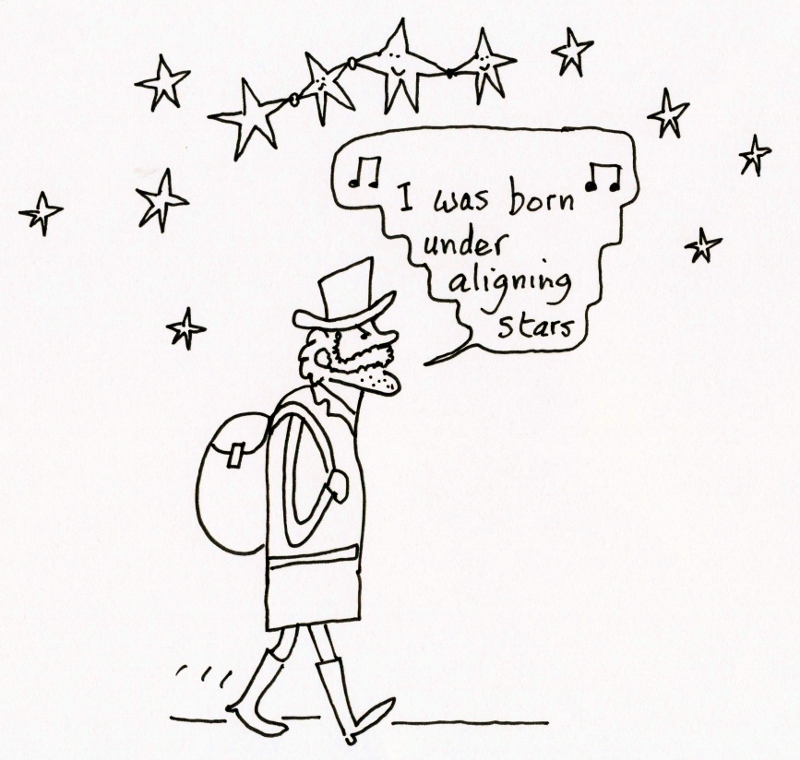 I was born
under
aligning
stars